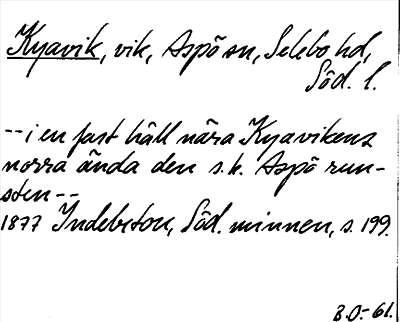 Kyavik, vik, Aspö sn, Selebo hd,
Söd. l.
-- i en fast häll nära Kyavikens
norra ända den s.k. Aspö run-
sten --
1877 Indebetou, Söd. minnen, s. 199.
B.O. - 61.